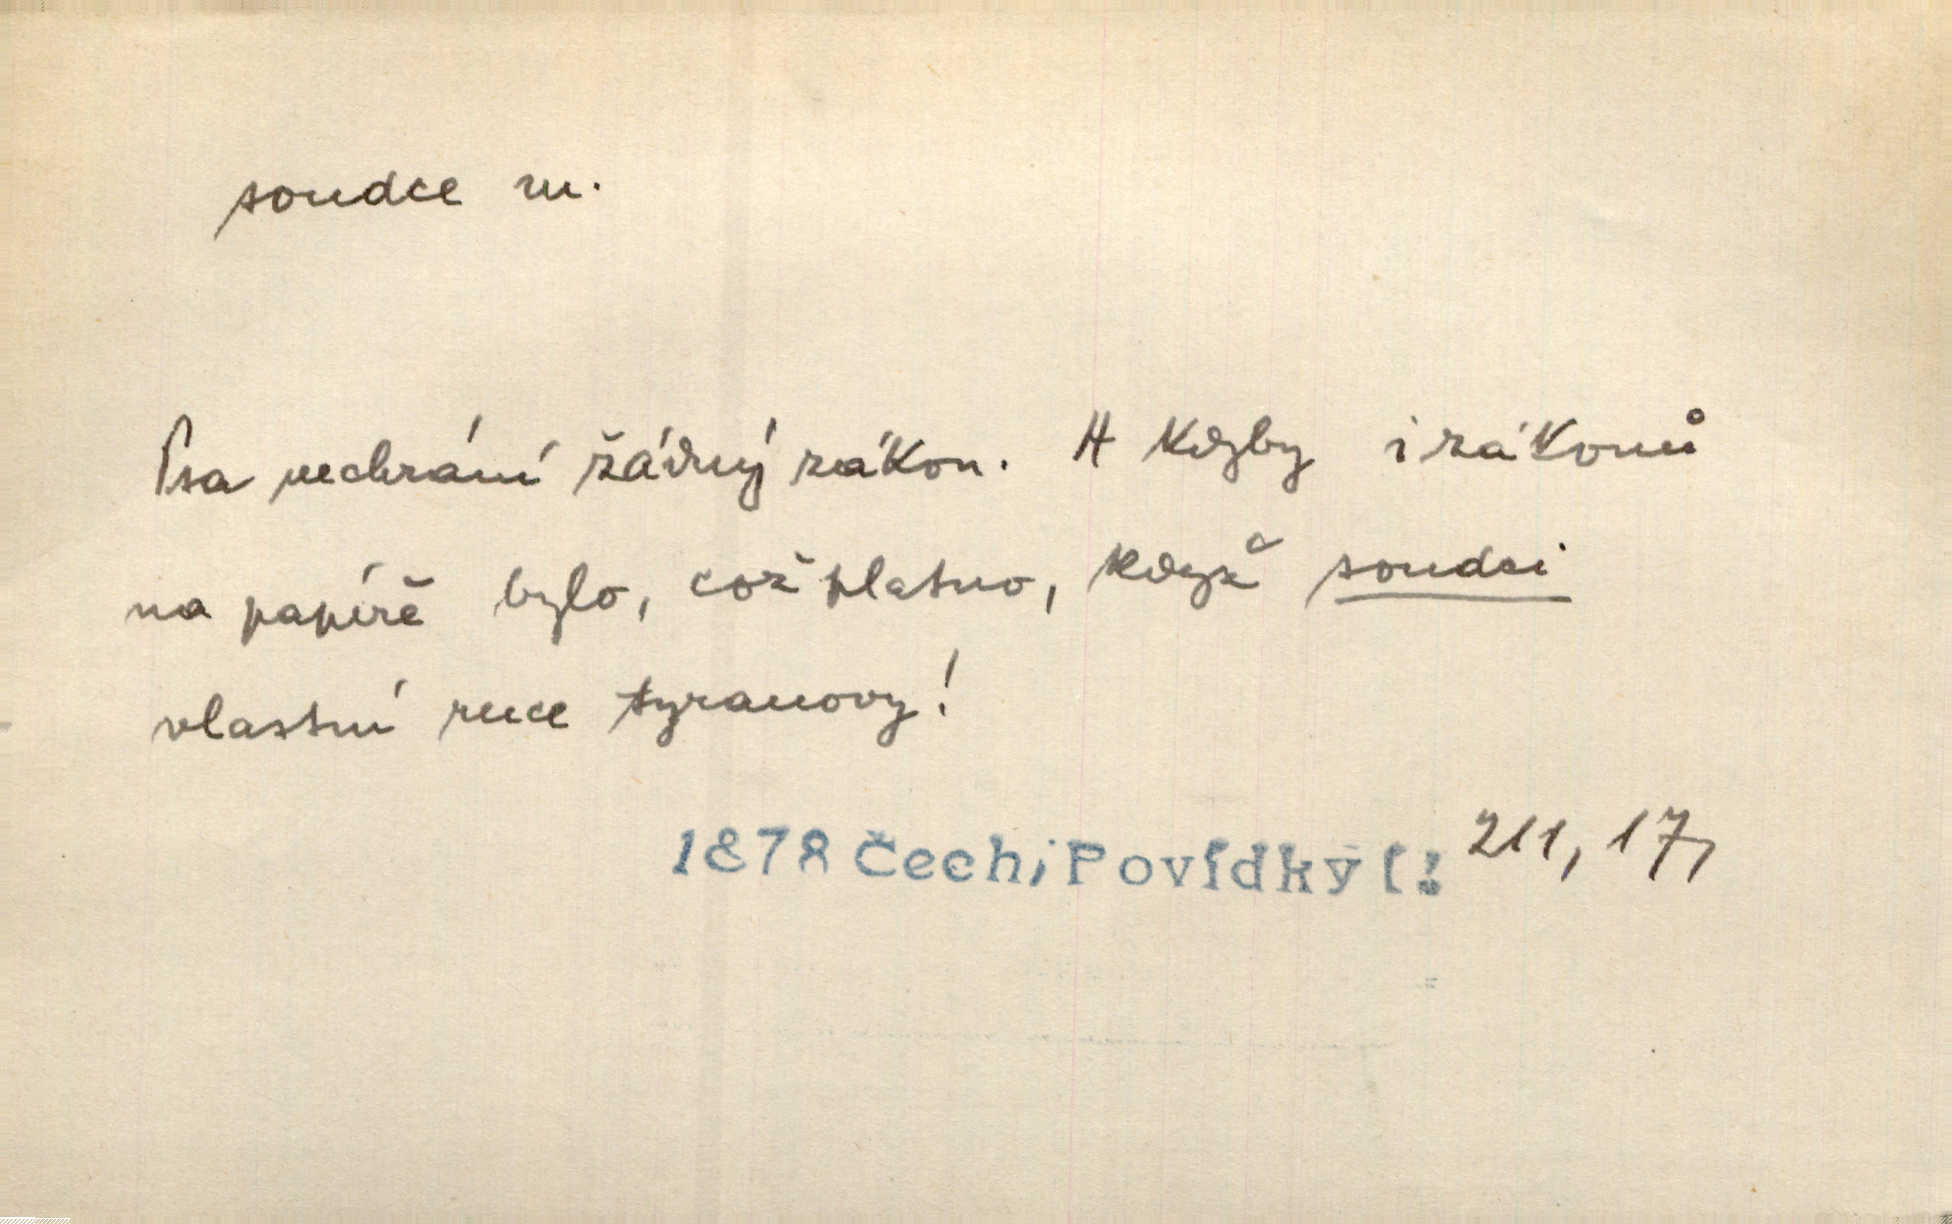 soudce m.
Psa nechrání žádný zákon. A kdyby i zákonů
na papíře bylo, což platno, když soudci
vlastní ruce tyranovy!
1878 Čech, Povídky I: 211, 17,